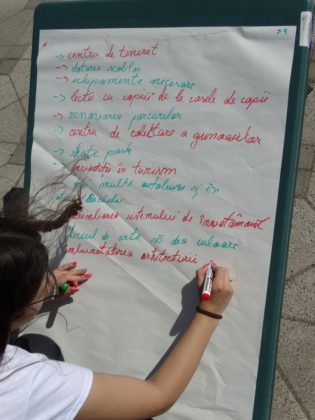 -> centru de tineret
-> dotarea scolilor
-> echipamente necesare
-> lectii cu copiii de la casele de copii
-> renovarea parcurilor
-> centru de colectare a gunoaielor
-> skate park
investitii în turism
multe autobuze și în
schimbarea sistemului de învatamânt
de arte să dea culoare
imbunatatirea arhitecturii